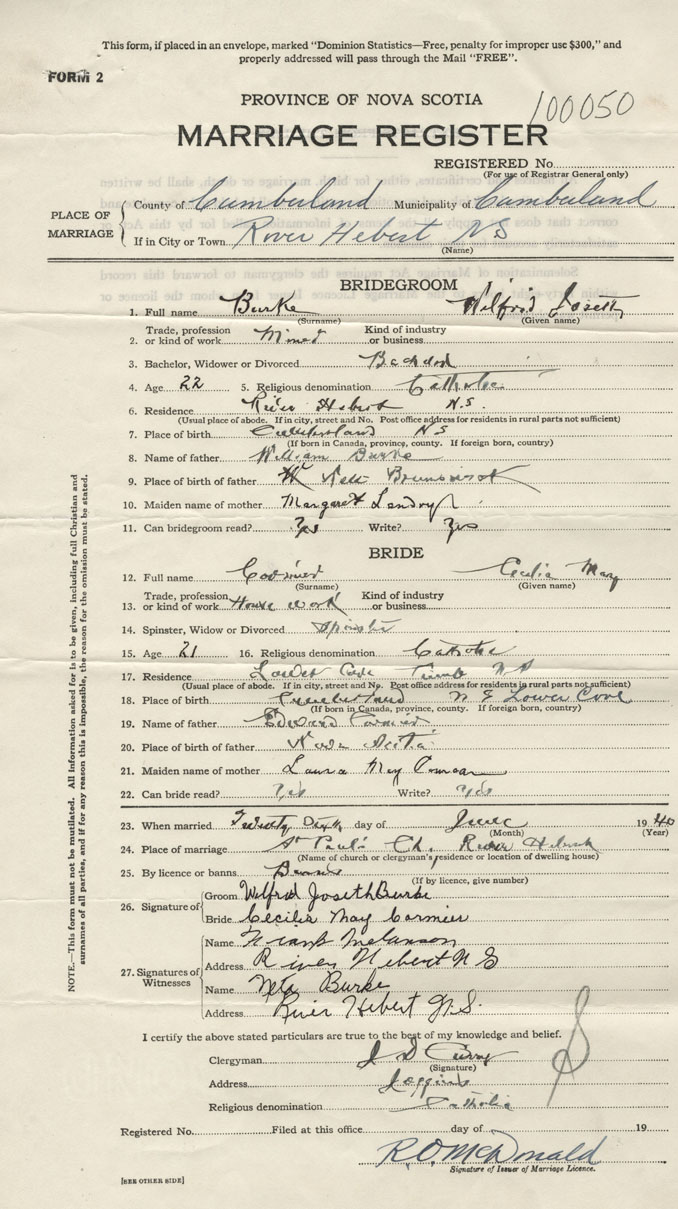 This form, if placed in an envelope, marked "Dominion Statistics—Free, penalty for improper use $300," and
properly addressed will pass through the Mail "FREE".
FORM 2
PROVINCE OF NOVA SCOTIA
100050
MARRIAGE REGISTER
REGISTERED No.
(For use of Registrar General only)
PLACE OF MARRIAGE
County of Cumberland Municipality of Cumberland
If in City or Town River Hebert N S
(Name)
BRIDEGROOM
1. Full name Burke Wilfrid Joseth
(Surname) (Given name)
2. Trade, profession or kind of work Miner Kind of industry or business
3. Bachelor, Widower or Divorced Bachelor
4. Age 22 5. Religious denomination Catholic
6. Residence River Hebert N.S.
(Usual place of abode. If in city, street and No. Post office address for residents in rural parts not sufficient)
7. Place of birth Cumberland N S
(If born in Canada, province, county. If foreign born, country)
8. Name of father William Burke
9. Place of birth of father New Brunswick
10. Maiden name of mother Margaret Landry
11. Can bridegroom read? Yes Write? Yes
BRIDE
12. Full name Cormier Cecilia May
(Surname) (Given name)
13. Trade, profession or kind of work House work Kind of industry or business
14. Spinster, Widow or Divorced Spinster
15. Age 21 16. Religious denomination Catholic
17. Residence Lower Cove Cumb N S
(Usual place of abode. If in city, street and No. Post office address for residents in rural parts not sufficient)
18. Place of birth Cumberland N S Lower Cove
(If born in Canada, province, county. If foreign born, country)
19. Name of father Edward Cormier
20. Place of birth of father Nova Scotia
21. Maiden name of mother Laura May
22. Can bride read? Yes Write? Yes
23. When married Twenty Sixth day of June 1940
(Month) (Year)
24. Place of marriage St Paul's Ch. River Hebert
(Name of church or clergyman's residence or location of dwelling house)
25. By licence or banns Banns
(If by licence, give number)
26. Signature of
Groom Wilfrid Joseth Burke
Bride Cecilia May Cormier
27. Signatures of Witnesses
Name Frank Melanson
Address River Hebert N S
Name Neta Burke
Address River Hebert N.S.
I certify the above stated particulars are true to the best of my knowledge and belief.
Clergyman J D Curry
(Signature)
Address Joggins
Religious denomination Catholic
Registered No. Filed at this office day of 19
R.O. McDonald
Signature of Issuer of Marriage Licence.
[SEE OTHER SIDE]
NOTE.—This form must not be mutilated. All information asked for is to be given, including full Christian and
surnames of all parties, and if for any reason this is impossible, the reason for the omission must be stated.